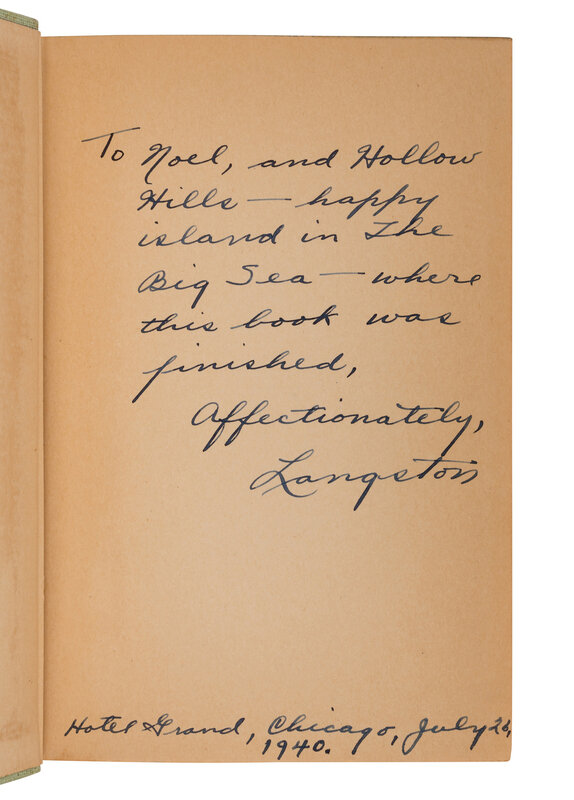 To Noel, and Hollow
Hills — happy
island in The
Big Sea — where
this book was
finished,
Affectionately,
Langston
Hotel Grand, Chicago, July 26,
1940.